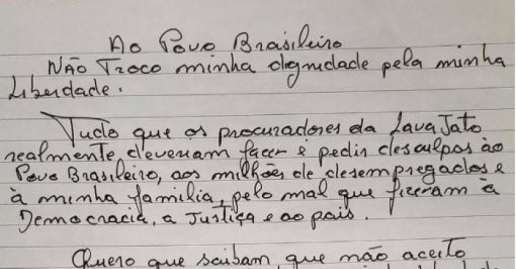 Ao Povo Brasileiro
Não Troco minha dignidade pela minha
Liberdade.
Tudo que os procuradores da Lava Jato
realmente deveriam fazer é pedir desculpas ao
Povo Brasileiro, aos milhões de desempregados e
à minha familia, pelo mal que fizeram à
Democracia, a Justiça e ao país.
Quero que saibam que não aceito